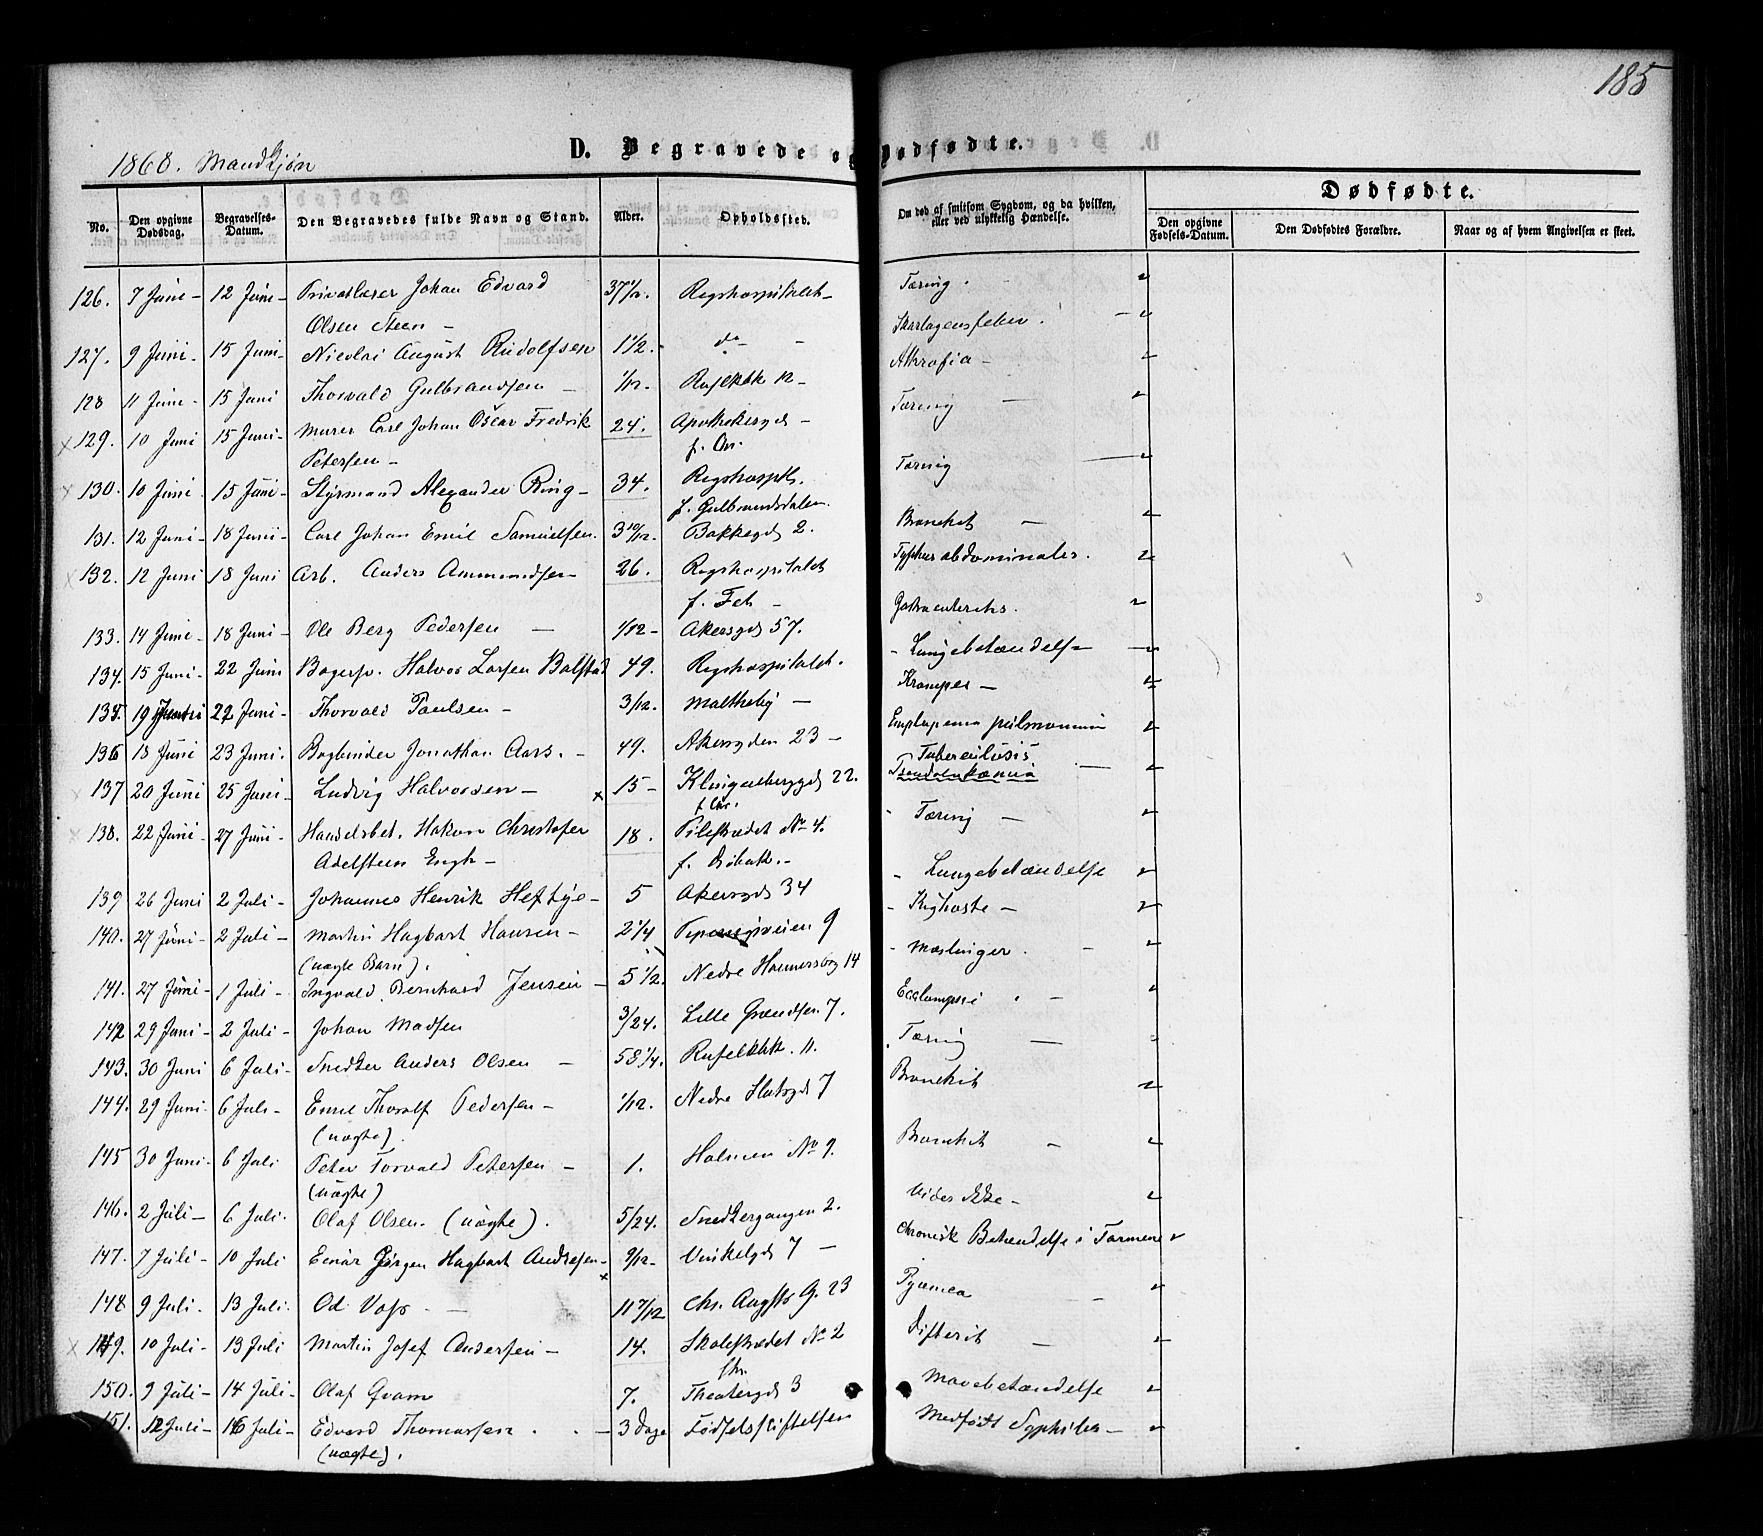 185
D. Begravede og Dødfødte.
1868. Mandkjøn
No. Den opgivne Dødsdag. Begravelses-Datum. Den Begravedes fulde Navn og Stand. Alder. Opholdssted. Om død af smitsom Sygdom, og da hvilken, eller ved ulykkelig Hændelse. Dødfødte.
Den opgivne Fødsels-Datum. Den Dødfødtes Forældre. Naar og af hvem Angivelsen er skeet.
126. 7 Juni - 12 Juni - Privatlærer Johan Edvard 37 1/2. Rigshospitalet - Tæring.
Olsen Steen -
127. 9 Juni - 15 Juni - Nicolai August Rudolfsen 1 1/2. do - Skarlagensfeber.
128 11 Juni - 15 Juni Thorvald Gulbrandsen - 1/12. 12 - Athrofia -
129. 10 Juni 15 Juni - Murer Carl Johan Oscar Fredrik 24. Apothekergd - Tæring -
Petersen - f. Chr.
130. 10 Juni 15 Juni - Styrmand Alexander Ring - 34. Rigshosptl. Tæring
f. Gulbrandsdalen.
131. 12 Juni - 18 Juni - Carl Johan Emil Samuelsen. 3 10/12. Bakkegd 2. Bronchit -
132. 12 Juni 18 Juni Arb. Anders Ammundsen - 26. Rigshospitalet Typhus abdominales.
f. Fet -
133. 14 Juni - 18 Juni - Ole Berg Pedersen - 1/12 - Akersgd 57. Gastroenterits.
134. 15 Juni - 22 Juni Bagersv. Halvor Larsen Bolstad 49. Rigshospitalet. - Lungebetændelse -
135. 19 Juni 22 Juni - Thorvald Paulsen - 3/12. Maltheby - Kramper -
136 18 Juni 23 Juni. Bogbinder Jonathan Aars. - 49. Akersgden 23 - pulmonum
137 20 Juni 25 Juni - Ludvig Halvorsen - 15 - Klingenberggd 22. Tuberculosis
f. Chr.
138. 22 Juni - 27 Juni - Handelsbet. Hakon Christofer 18. Pilestrædet No 4. - Tæring -
Adelsteen Engh - f. Drøbak. -
139 26 Juni 2 Juli - Johannes Henrik Heftye - 5 Akersgd 34 - Lungebetændelse
140. 27 Juni - 2 Juli - Martin Hagbart Hansen - 2 1/4 9 - Kighoste -
(uægte Barn).
141. 27 Juni - 1 Juli - Ingvald Bernhard Jensen - 5 1/2. Nedre 14 - Mæslinger. -
142 29 Juni - 2 Juli - Johan Madsen 3/24. Lille Grændsen 7. Ecclampsi -
143. 30 Juni 6 Juli - Snedker Anders Olsen - 58 1/4. 11. Tæring -
144. 29 Juni - 6 Juli - Emil Thorolf Pedersen - 1/12. Nedre Slotsgd 7 Bronchit
(uægte).
145 30 Juni - 6 Juli Peter Torvald Petersen - 1. Holmen No 9. Bronchit -
(uægte)
146. 2 Juli - 6 Juli. Olaf Olsen. (uægte). 5/24. Snedkergangen 2. Vides ikke -
147. 7 Juli - 10 Juli Einar Jørgen Hagbart Andresen - 9/12 - Vinkelgd 7 - Chronisk Betændelse i Tarmene
148 9 Juli - 13 Juli. Od. Voss. - 11 7/12 Chr. Augsts G. 23 Pyæmea -
149. 10 Juli - 13 Juli Martin Josef Andersen - 14. Skolestrædet No 2 Difterit -
Chr.
150. 9 Juli - 14 Juli - Olaf Qvam 7. Theatergd 3 Mavebetændelse
151. 12 Juli - 16 Juli - Edvard Thomassen. - 3 Dage Fødselsstiftelsen Medfødt Syphilis -
(uægte).